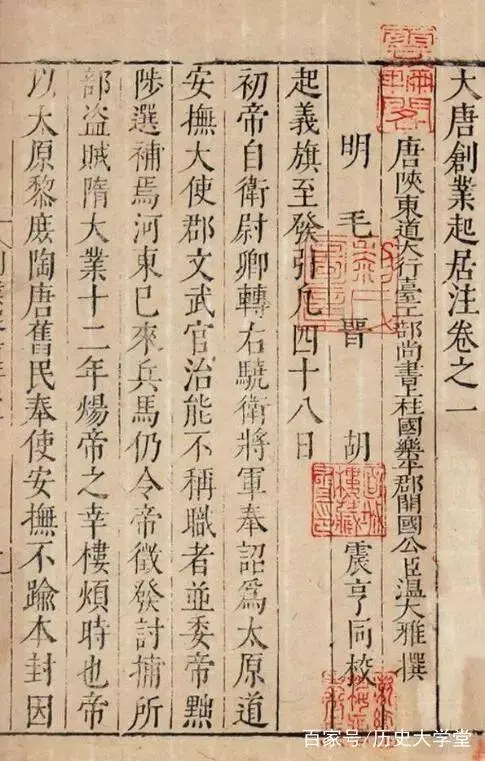 大唐創業起居注卷之一
唐陝東道大行臺工部尚書上柱國樂平郡開國公臣溫大雅撰
明 毛晉 胡震亨同校
起義旗至發引凡四十八日
初帝自衛尉卿轉右驍衛將軍奉詔爲太原道
安撫大使郡文武官治能不稱職者並委帝黜
陟選補焉河東已來兵馬仍令帝徵發討捕所
部盜賊隋大業十二年煬帝之幸樓煩時也帝
以太原黎庶陶唐舊民奉使安撫不踰本封因
百家号/历史大学堂